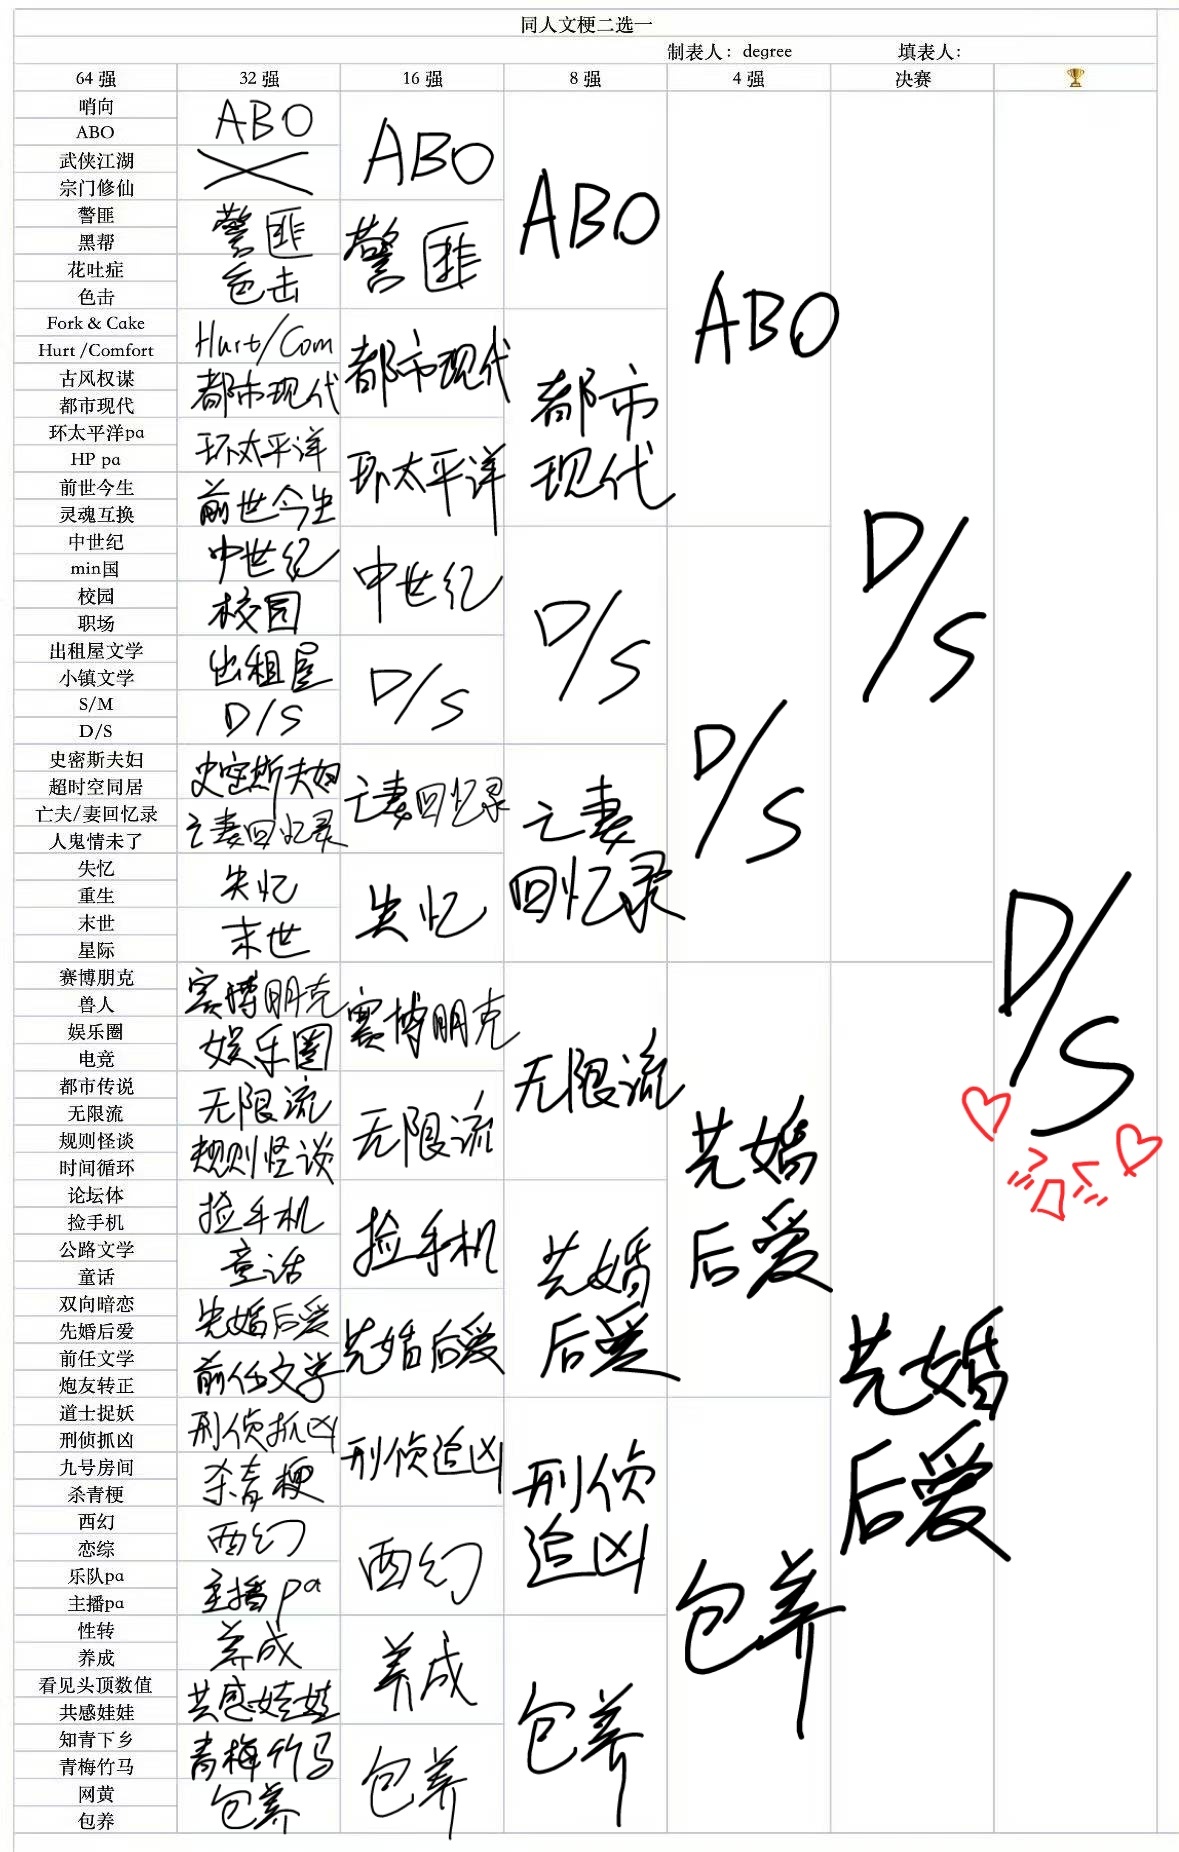 同人文梗二选一
制表人：degree 填表人：
64 强 32 强 16 强 8 强 4 强 决赛
哨向
ABO
武侠江湖
宗门修仙
警匪
黑帮
花吐症
色击
Fork & Cake
Hurt /Comfort
古风权谋
都市现代
环太平洋pa
HP pa
前世今生
灵魂互换
中世纪
min国
校园
职场
出租屋文学
小镇文学
S/M
D/S
史密斯夫妇
超时空同居
亡夫/妻回忆录
人鬼情未了
失忆
重生
末世
星际
赛博朋克
兽人
娱乐圈
电竞
都市传说
无限流
规则怪谈
时间循环
论坛体
捡手机
公路文学
童话
双向暗恋
先婚后爱
前任文学
炮友转正
道士捉妖
刑侦抓凶
九号房间
杀青梗
西幻
恋综
乐队pa
主播pa
性转
养成
看见头顶数值
共感娃娃
知青下乡
青梅竹马
网黄
包养
ABO
警匪
色击
Hurt/Com
都市现代
环太平洋
前世今生
中世纪
校园
出租屋
D/S
史密斯夫妇
亡妻回忆录
失忆
末世
赛博朋克
娱乐圈
无限流
规则怪谈
捡手机
童话
先婚后爱
前任文学
刑侦抓凶
杀青梗
西幻
主播pa
养成
共感娃娃
青梅竹马
包养
ABO
警匪
都市现代
环太平洋
中世纪
D/S
亡妻回忆录
失忆
赛博朋克
无限流
捡手机
先婚后爱
刑侦追凶
西幻
养成
包养
ABO
都市
现代
D/S
亡妻
回忆录
无限流
先婚
后爱
刑侦
追凶
包养
ABO
D/S
先婚
后爱
包养
D/S
先婚
后爱
D/S